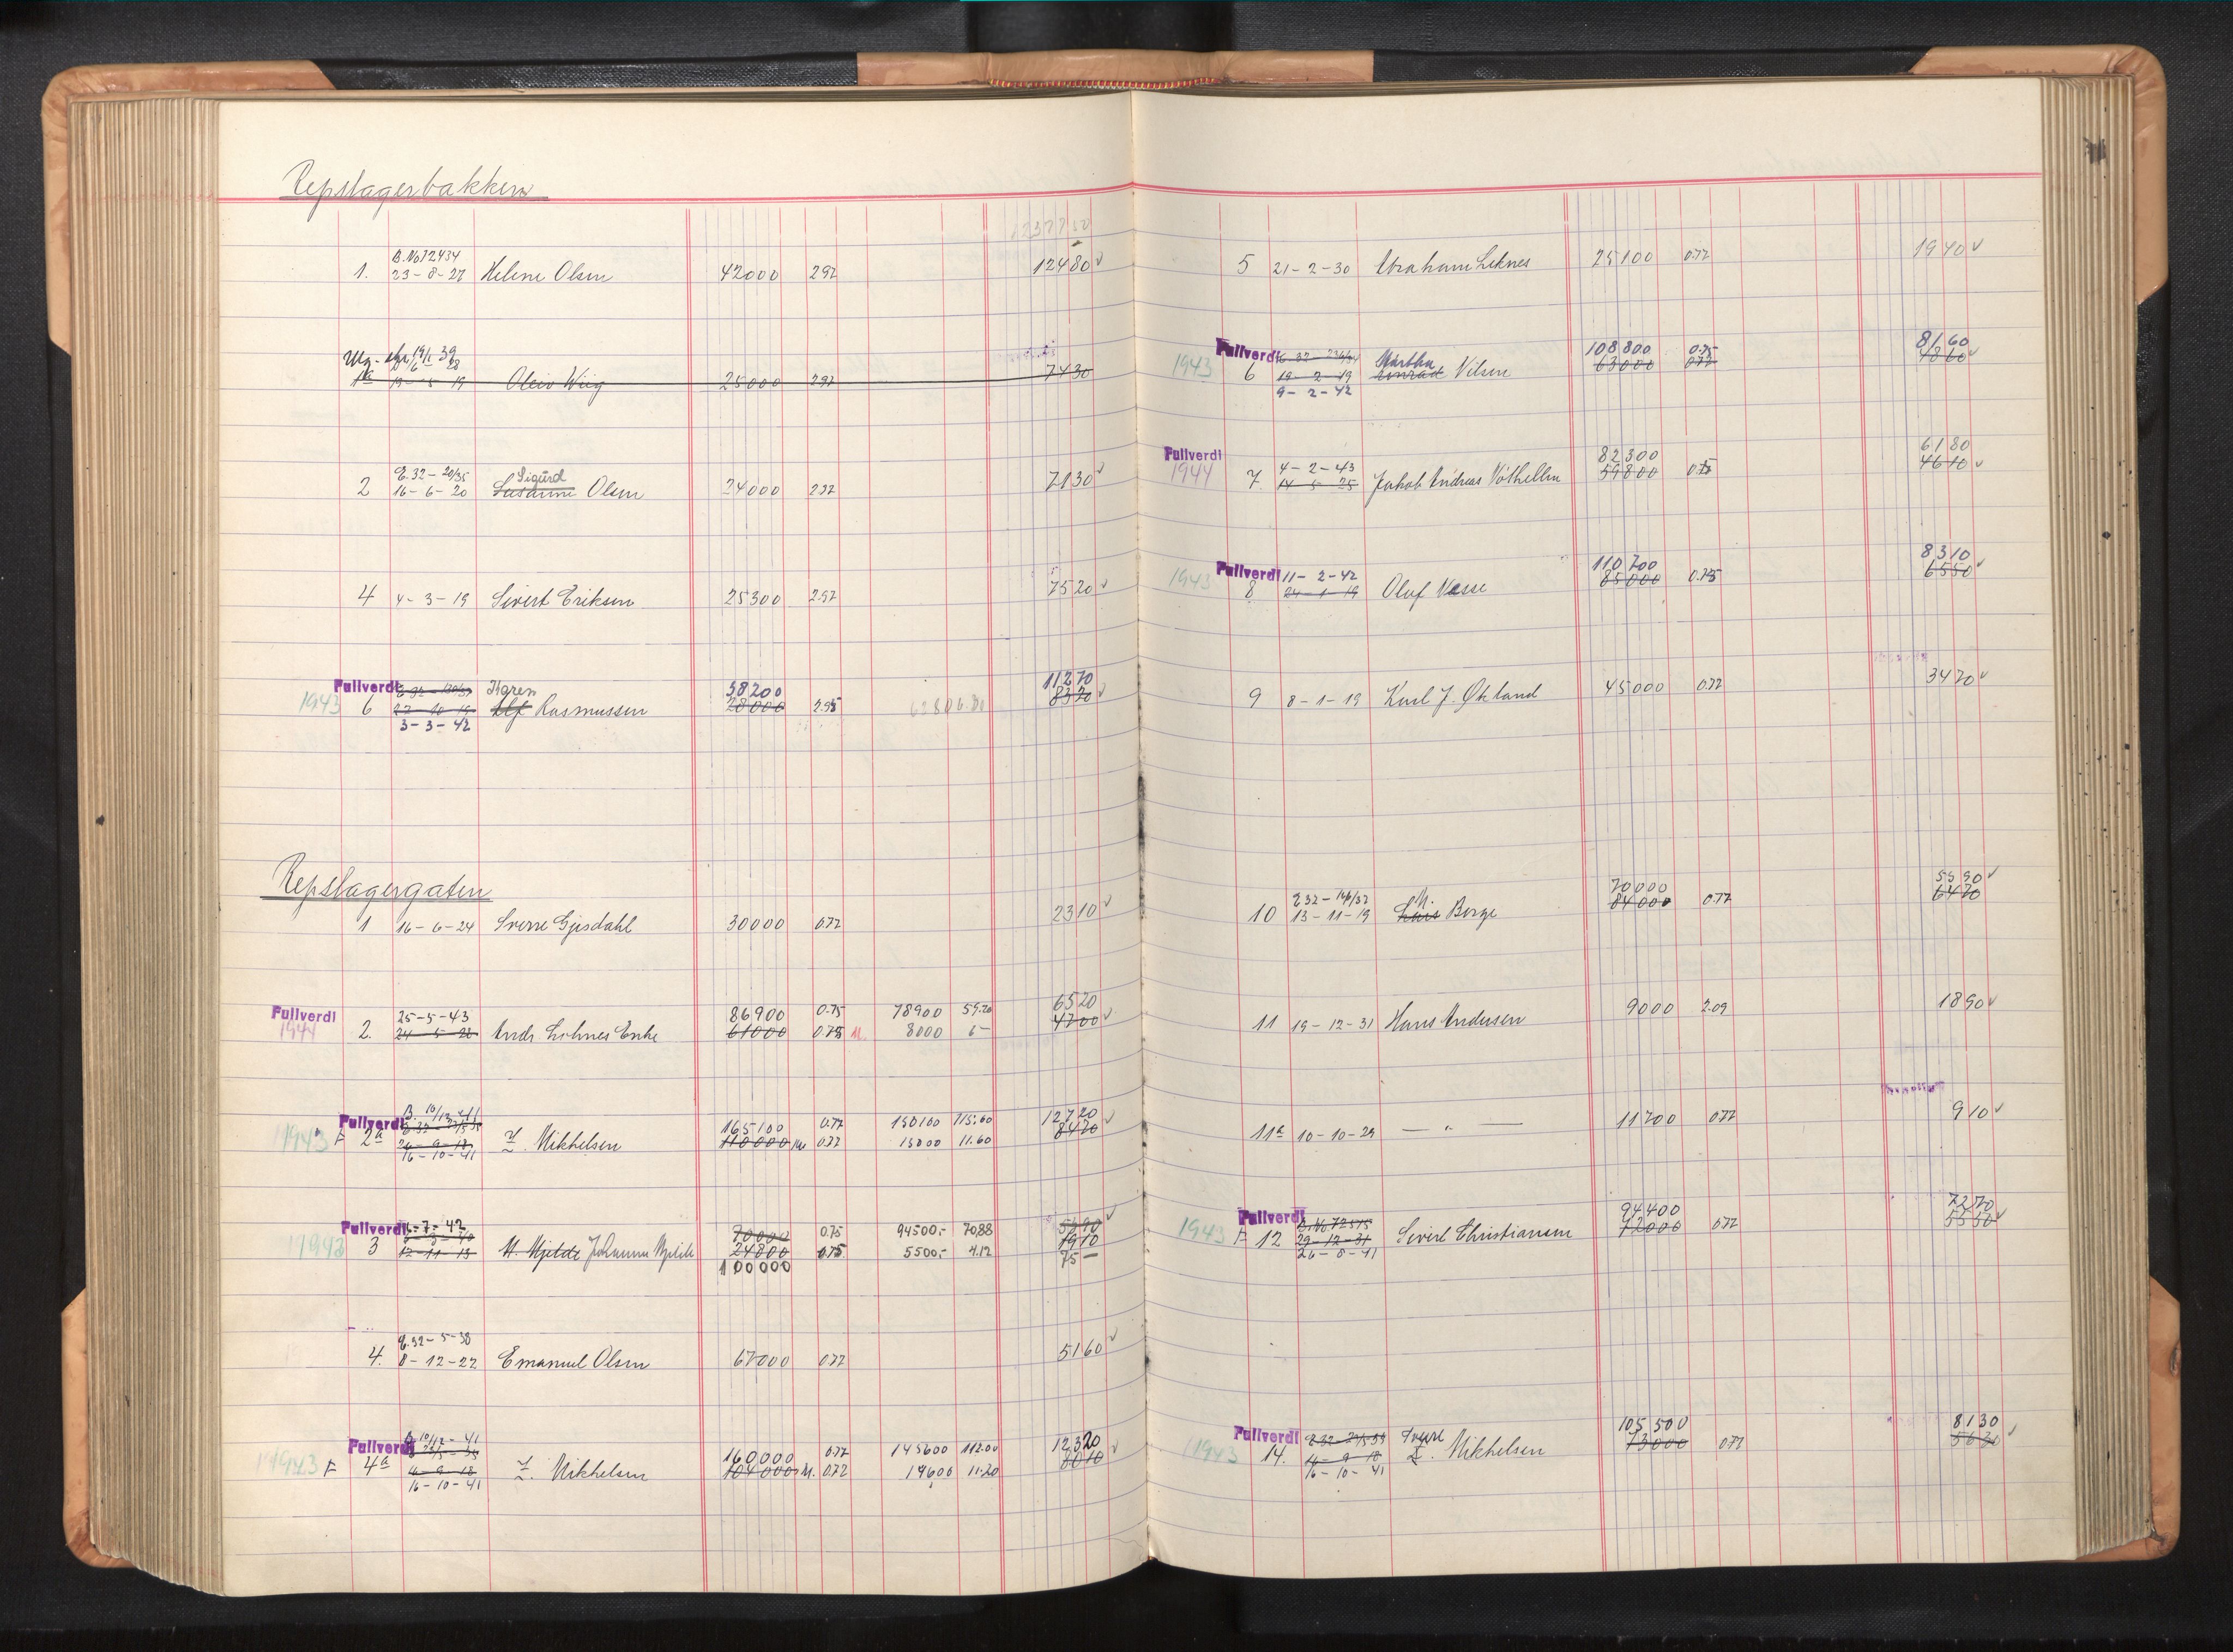 Repslagerbakken
B.No 72434
1. 23-8-27 Helene Olsen 42000 2.97 12480 ✓
1a 13-5-19 Oleiv Wiig 25000 2.97 7430
E.32-20/35 Sigurd
2 16-6-20 Susanne Olsen 24000 2.97 7130 ✓
4 4-3-19 Sivert Eriksen 25300 2.97 7520 ✓
Fullverdi Karen 38200 11270
1943 6 22-10-19 Alf Rasmussen 28000 2.95 8320 ✓
3-3-42
Repslagergaten
1 16-6-24 Sverre Gjesdahl 30000 0.77 2310 ✓
Fullverdi 25-5-43 86900 0.75 78900 59.20 6520
1944 2. 24-5-28 61000 0.75 M. 8000 6- 4700 ✓
Fullverdi B. 10/12-41 165100 0.77 150100 115.60 12720 ✓
1943 F 2a 26-9-18 Mikkelsen 110000 0.77 15000 11.60 8470
16-10-41
Fullverdi 6-7-42 70000 0.75 94500,- 70,88 5390 ✓
1943 3 12-11-13 M. Mjelde Johanna Mjelde 24800 0.75 5500,- 4.12 1910
100000 75-
E.32-5-38
4. 8-12-22 Emanuel Olsen 67000 0.77 5160 ✓
Fullverdi B. 10/12-41 160000 0.77 145600 112.00 12320 ✓
1943 F 4a 4-9-18 Mikkelsen 104000 M. 0.77 14600 11.20 8010
16-10-41
5 21-2-30 Abraham Leknes 25100 0.77 1940 ✓
Fullverdi Martha 108800 0.75 8160
1943 6 19-2-19 Konrad Nilsen 63000 0.77 4860 ✓
9-2-42
Fullverdi 4-2-43 82300 6180
1944 7. 14-5-25 Jakob Andreas 59800 0.75 4610 ✓
Fullverdi 11-2-42 110700 8310
1943 8 24-1-19 Oluf Vasse 85000 0.75 6550 ✓
9 8-1-19 Karl J. Økland 45000 0.77 3470 ✓
M. 70000 5390 ✓
10 13-11-19 Lars Borge 84000 0.77 6470
11 19-12-31 Hans Andersen 9000 2.09 1890 ✓
11a 10-10-29 — " — 11700 0.77 910 ✓
Fullverdi B.No 72515 94400 7270 ✓
1943 F 12 29-12-31 Sivert Christiansen 72000 0.77 5550
26-8-41
Fullverdi Sverre 105500 8130
1943 14. 14-9-18 Mikkelsen 73000 0.77 5630 ✓
16-10-41